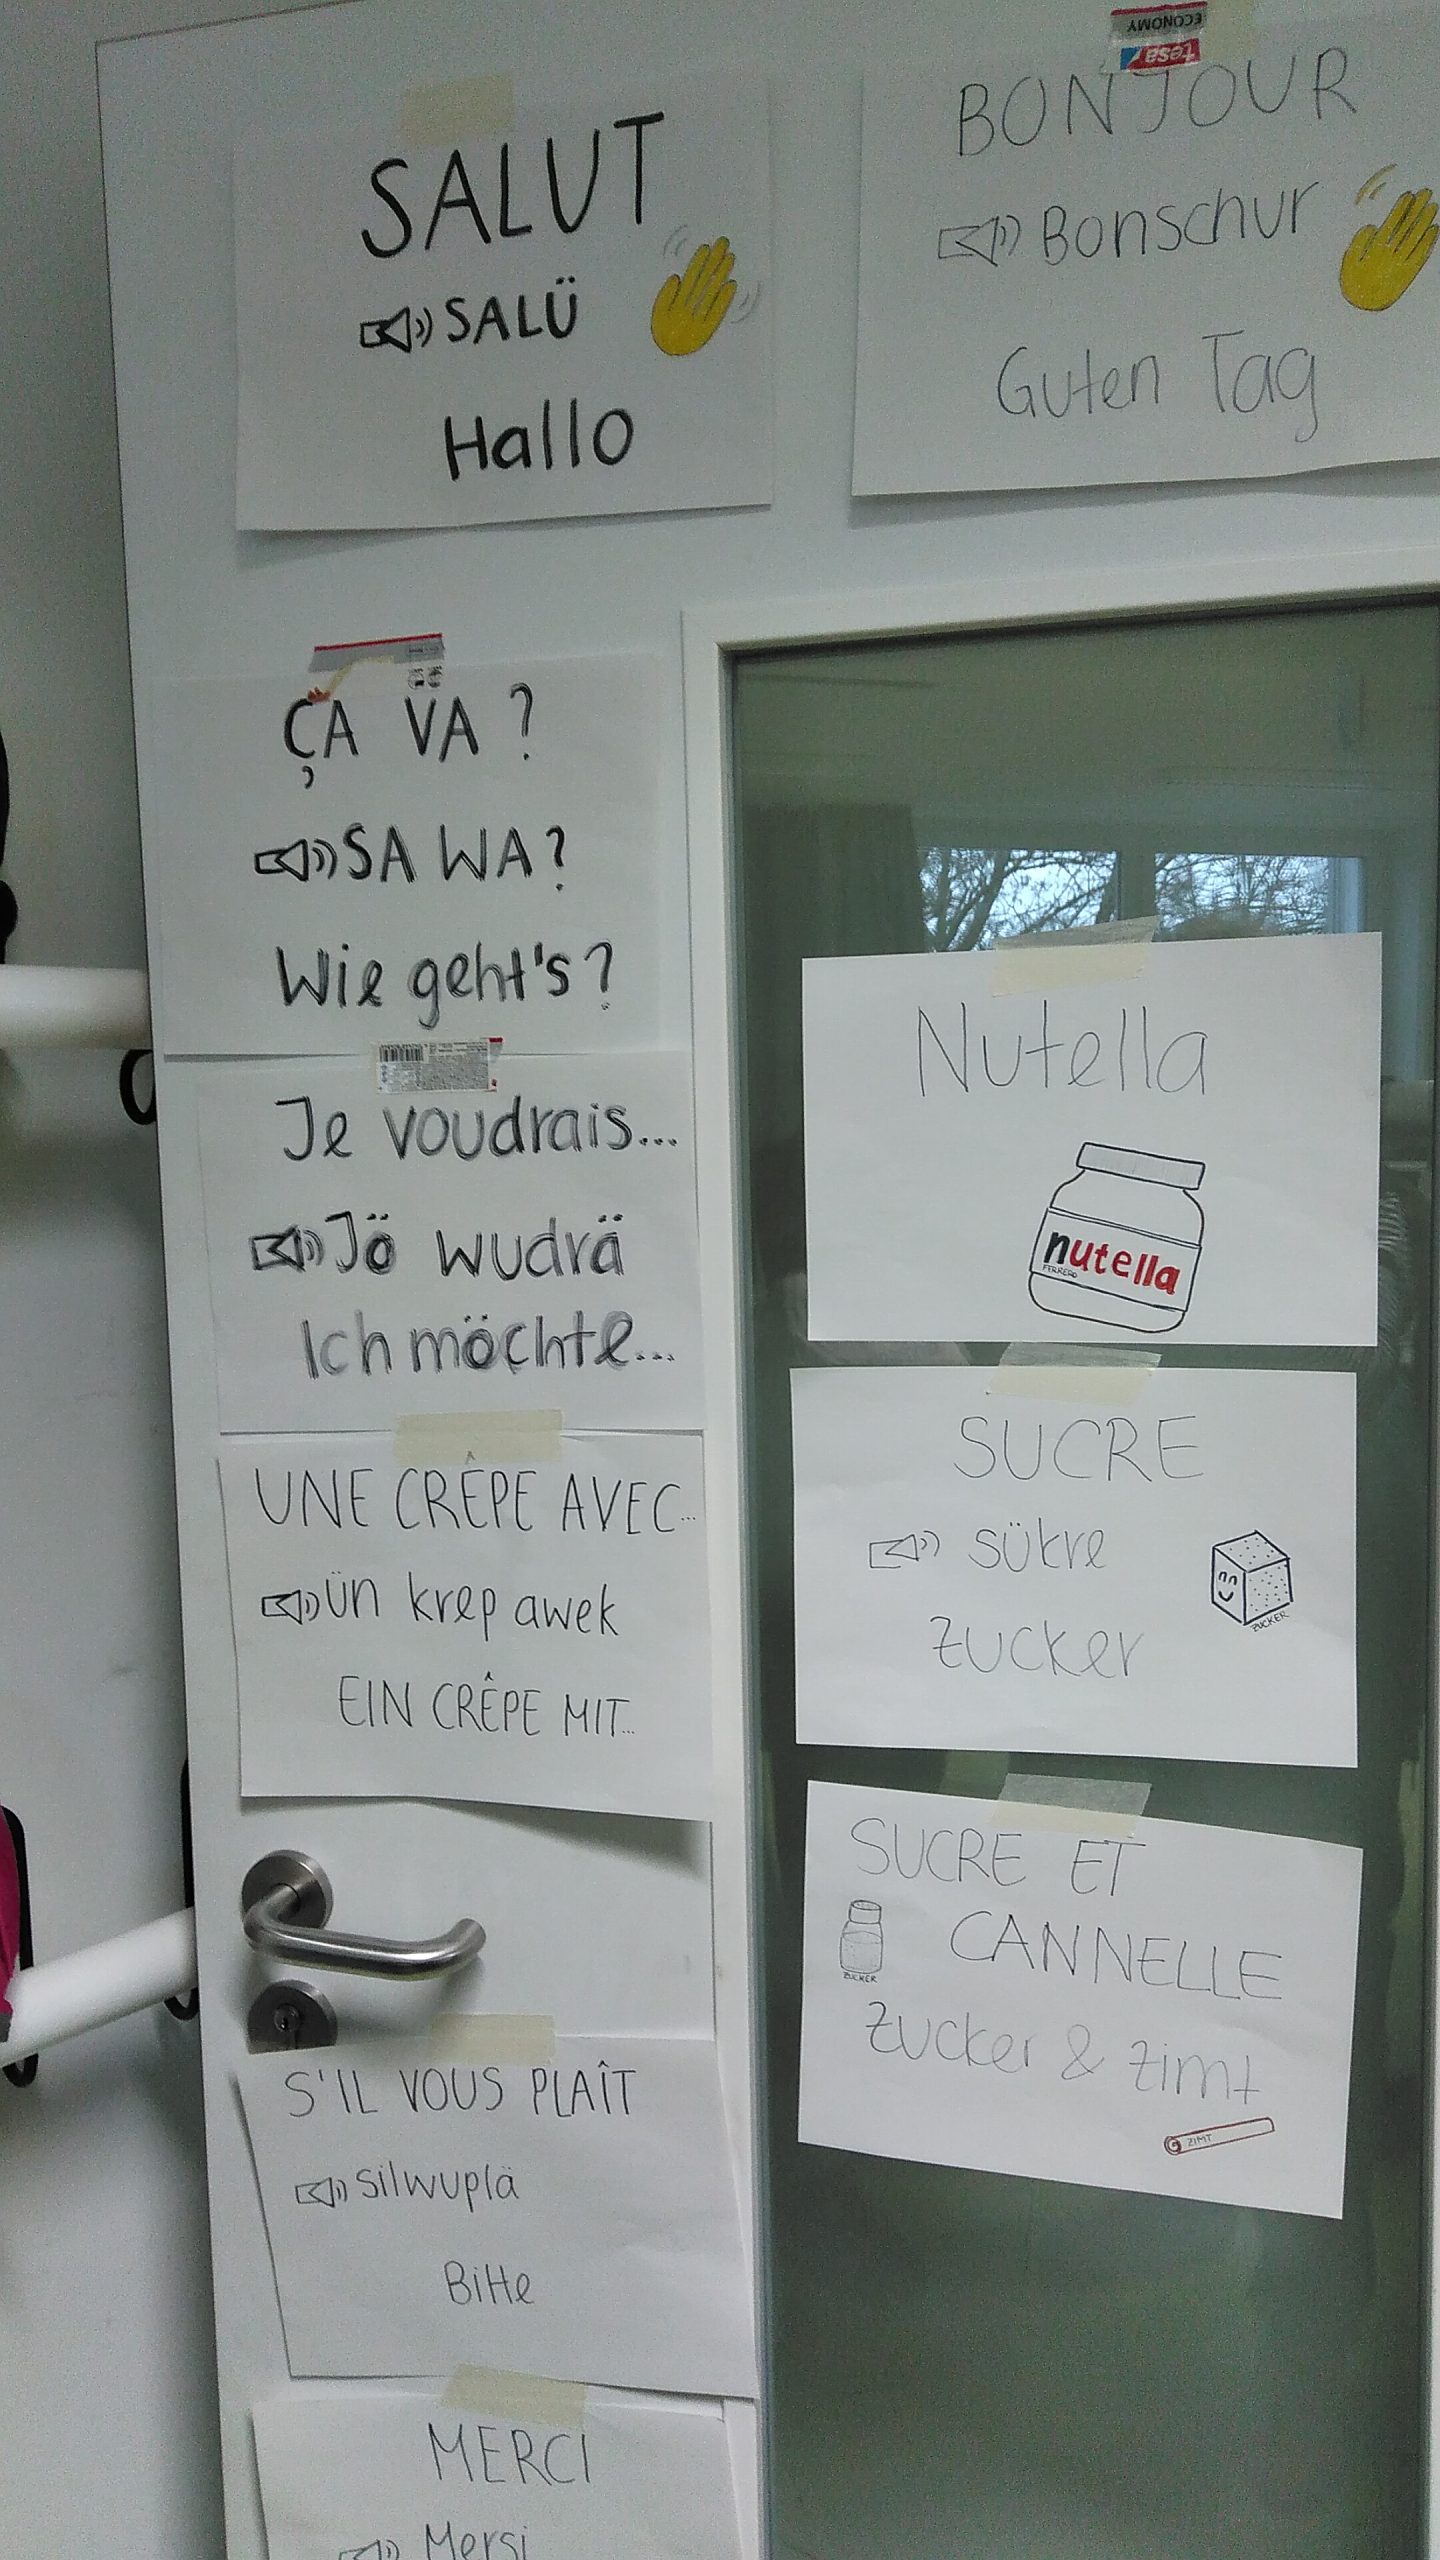 SALUT
SALÜ
Hallo
ECONOMY
tesa
BONJOUR
Bonschur
Guten Tag
ÇA VA?
SA WA?
Wie geht's?
Je voudrais...
Jö wudrä
Ich möchte...
UNE CRÊPE AVEC...
ün krep awek
EIN CRÊPE MIT...
S'IL VOUS PLAÎT
silwuplä
Bitte
MERCI
Mersi
Nutella
nutella
FERRERO
SUCRE
sükre
Zucker
ZUCKER
SUCRE ET
CANNELLE
ZUCKER
Zucker & Zimt
ZIMT